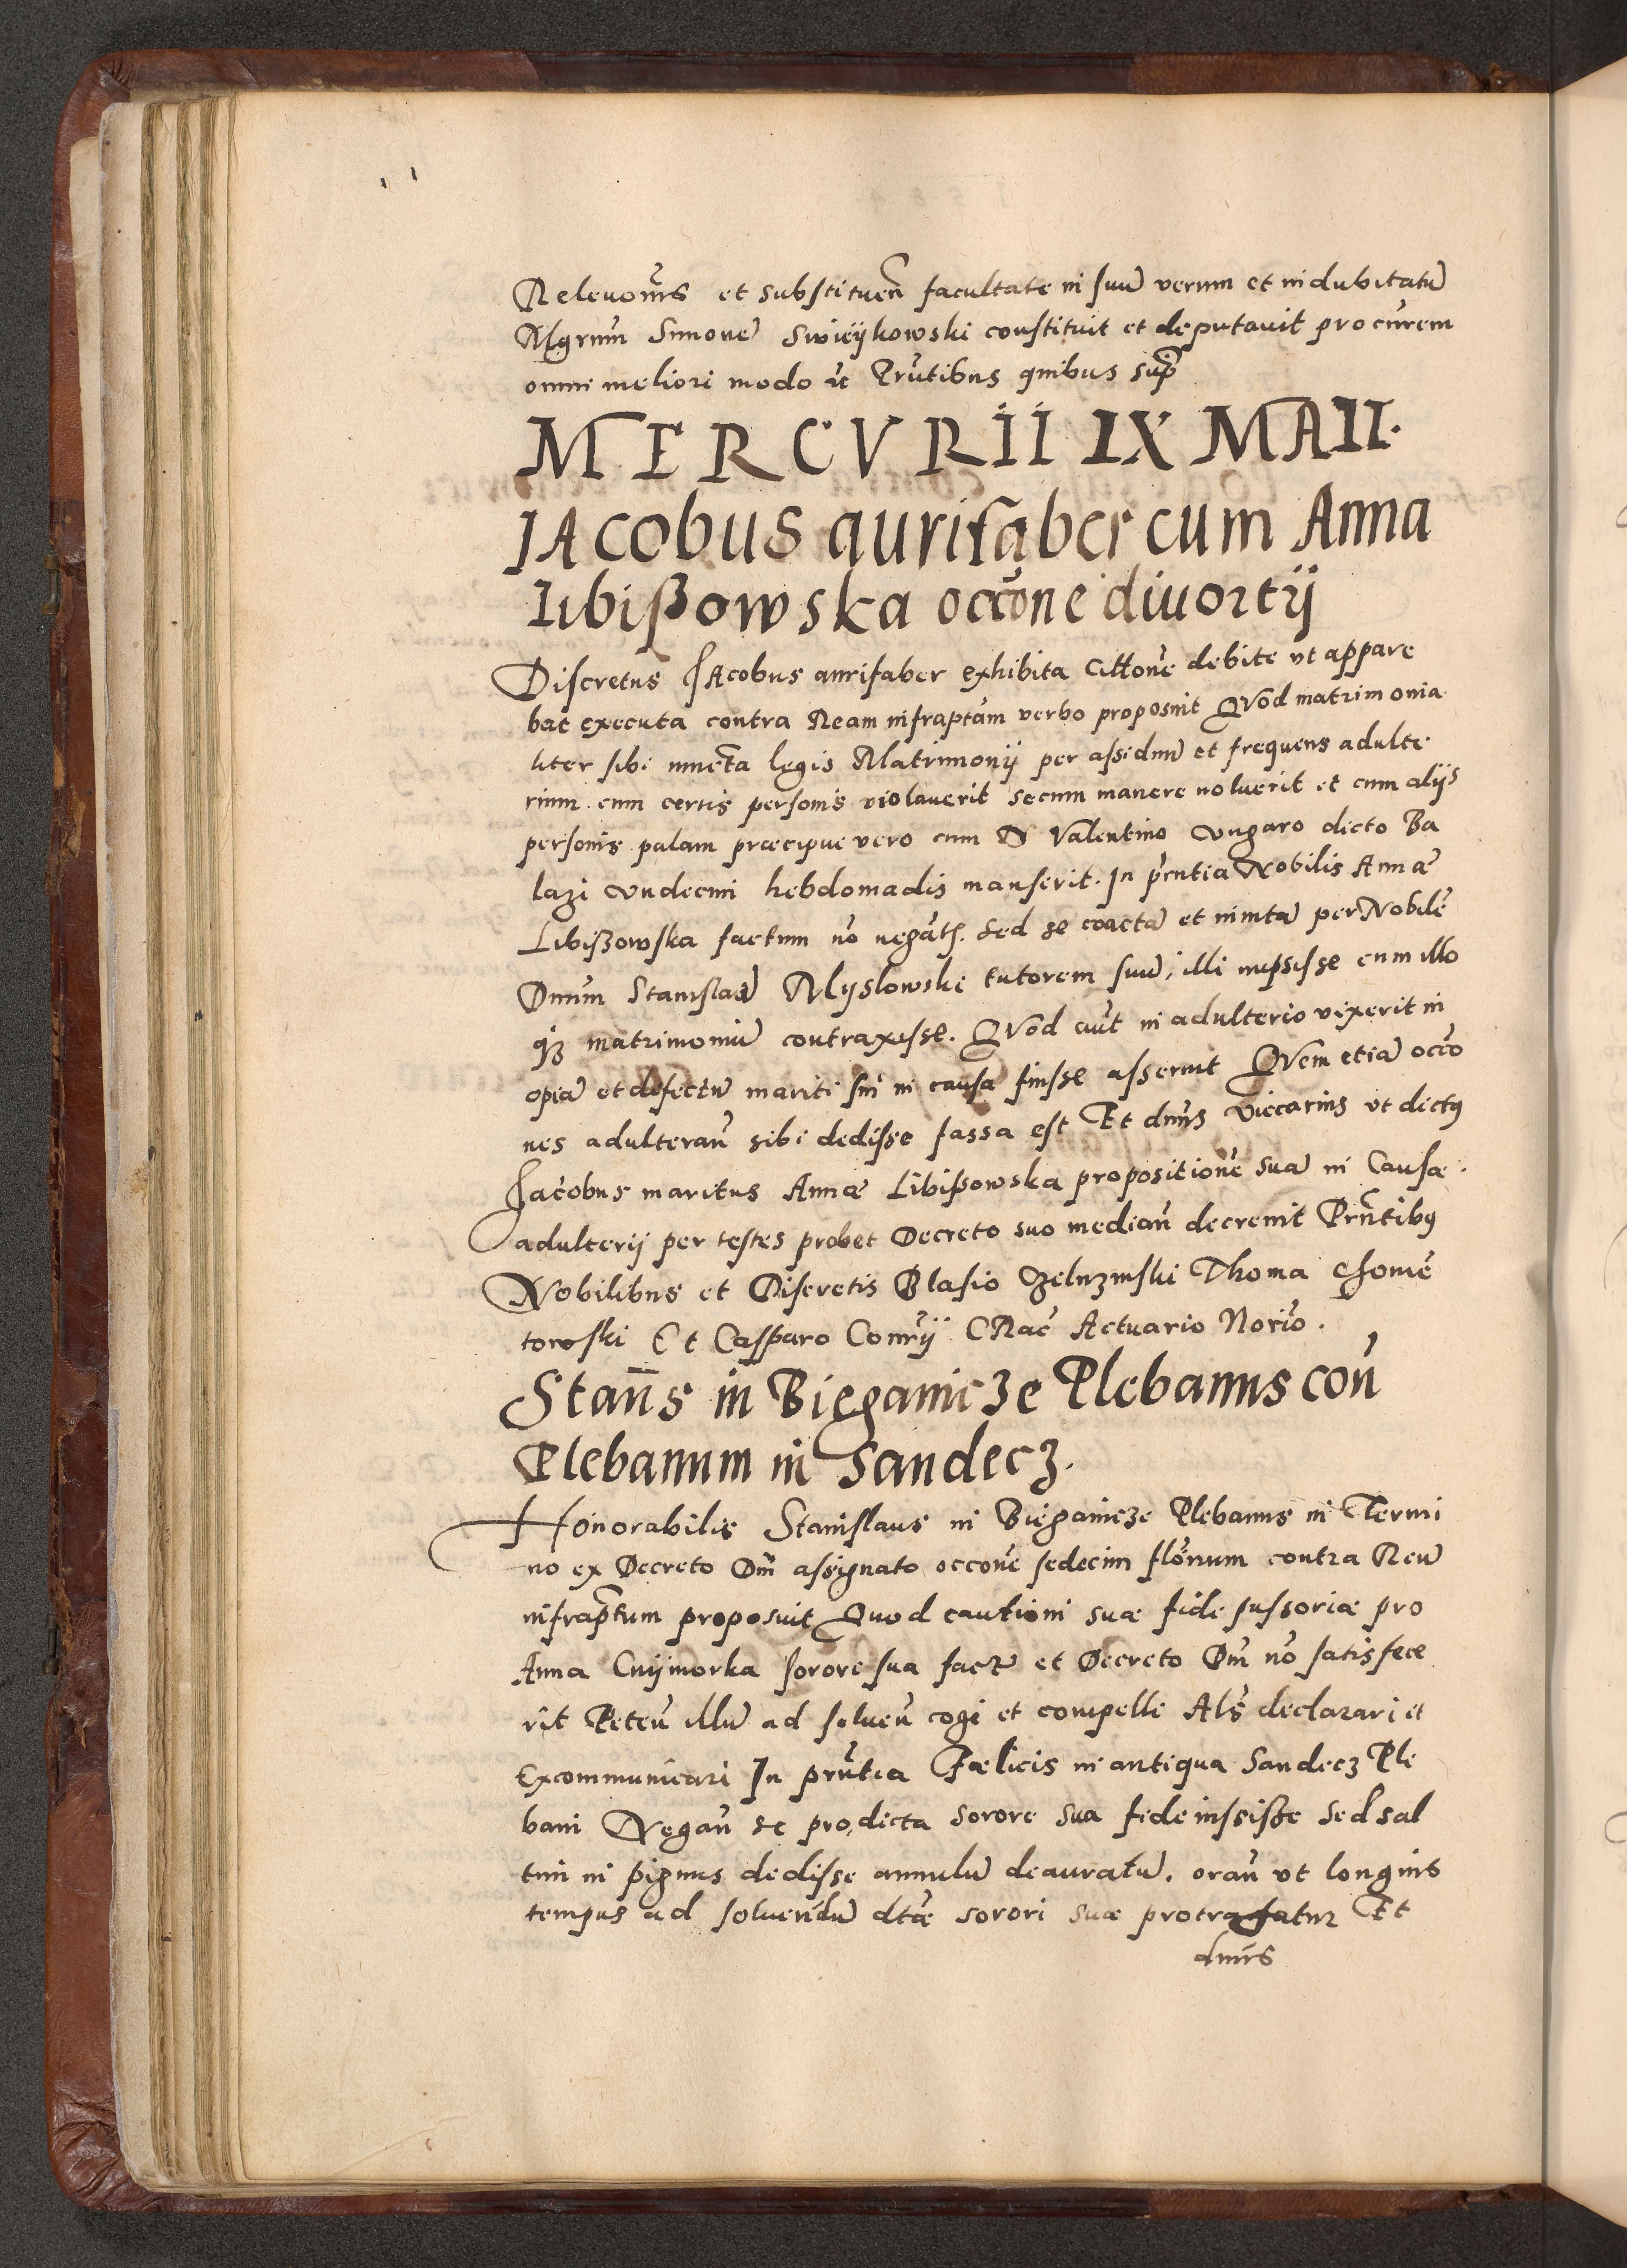 Relevoñis et substituen̄ facultate in suū verum et indubitatū
Mgrum Simonē Swieykowski constituit et deputavit procurem
omni meliori modo etc Prn̄tibus quibus sup̄
MERCVRII IX MAII.
IAcobus aurifaber cum Anna
Libißowska occōne divortij
Discretus Jacobus aurifaber exhibita Cittōne debite vt appare
bat executa contra Ream infrap̄tam verbo proposuit QVod matrimonia
liter sibi iuncta legis Matrimonij per assiduū et frequens adulte
rium cum certis personis violauerit secum manere noluerit et cum alijs
personis palam præcipue vero cum N Valentino Vngaro dicto Ba
lazi Vndecim hebdomadis manserit. In prn̄tia Nobilis Annæ
Libißowska factum nō negan̄tis. sed se coactā et inuitā per Nobilē
Dnūm Stanislaū Myslowski tutorem suū, illi nupsisse cum illo
qȝ matrimoniū contraxisse. QVod aūt in adulterio vixerit in
opiā et defectū mariti sui in causa fuisse asseruit QVem etiā occō
nes adulteran̄ sibi dedisse fassa est Et dnūs Viccarius vt dictꝰ
Jacobus maritus Annæ Libißowska propositionē suā in Causa
adulterij per testes probet Decreto suo median̄ decreuit Prn̄tibꝰ
Nobilibus et Discretis Blasio Zeluzinski Thoma Chomē
towski Et Casparo Conrij CRac̄ Actuario Norio.
Stan̄s in Bieganicze Plebanus con̄
Plebanum in Sandecz.
Honorabilis Stanislaus in Bieganicze Plebanus in Termi
no ex Decreto Dnī assignato occōne sedecim flōrnum contra Reū
infrap̄tum proposuit Quod cautioni suæ fideiussoriæ pro
Anna Cnijmorka sorore sua factæ et Decreto Dnī nō satisfece
rit Peten̄ illū ad soluen̄ cogi et compelli Al̄s declarari et
Excommunicari In prn̄tia Fælicis in antiqua Sandecz Ple
bani Negan̄ se pro dicta sorore sua fideiussisse sed sal
tim in pignus dedisse annulū deauratū. oran̄ vt longius
tempus ad soluendū dtæ sorori suæ protrahatur Et
dnūs